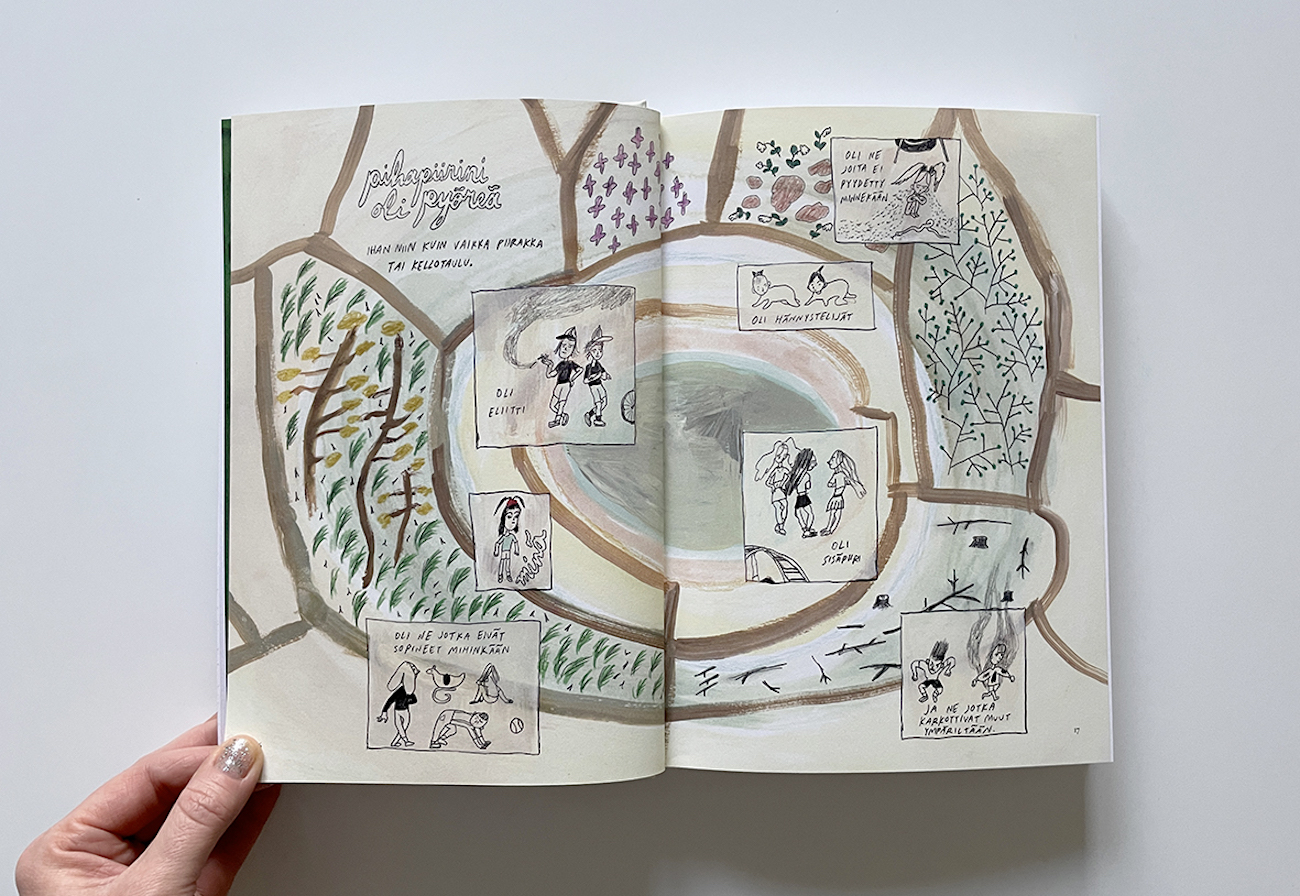 pihapiirini
oli pyöreä
IHAN NIIN KUIN VAIKKA PIIRAKKA
TAI KELLOTAULU.
OLI
ELIITTI
minä
OLI NE JOTKA EIVÄT
SOPINEET MIHINKÄÄN
OLI NE
JOITA EI
PYYDETTY
MINNEKÄÄN
OLI HÄNNYSTELIJÄT
OLI
SISÄPIIRI
JA NE JOTKA
KARKOTTIVAT MUUT
YMPÄRILTÄÄN.
17